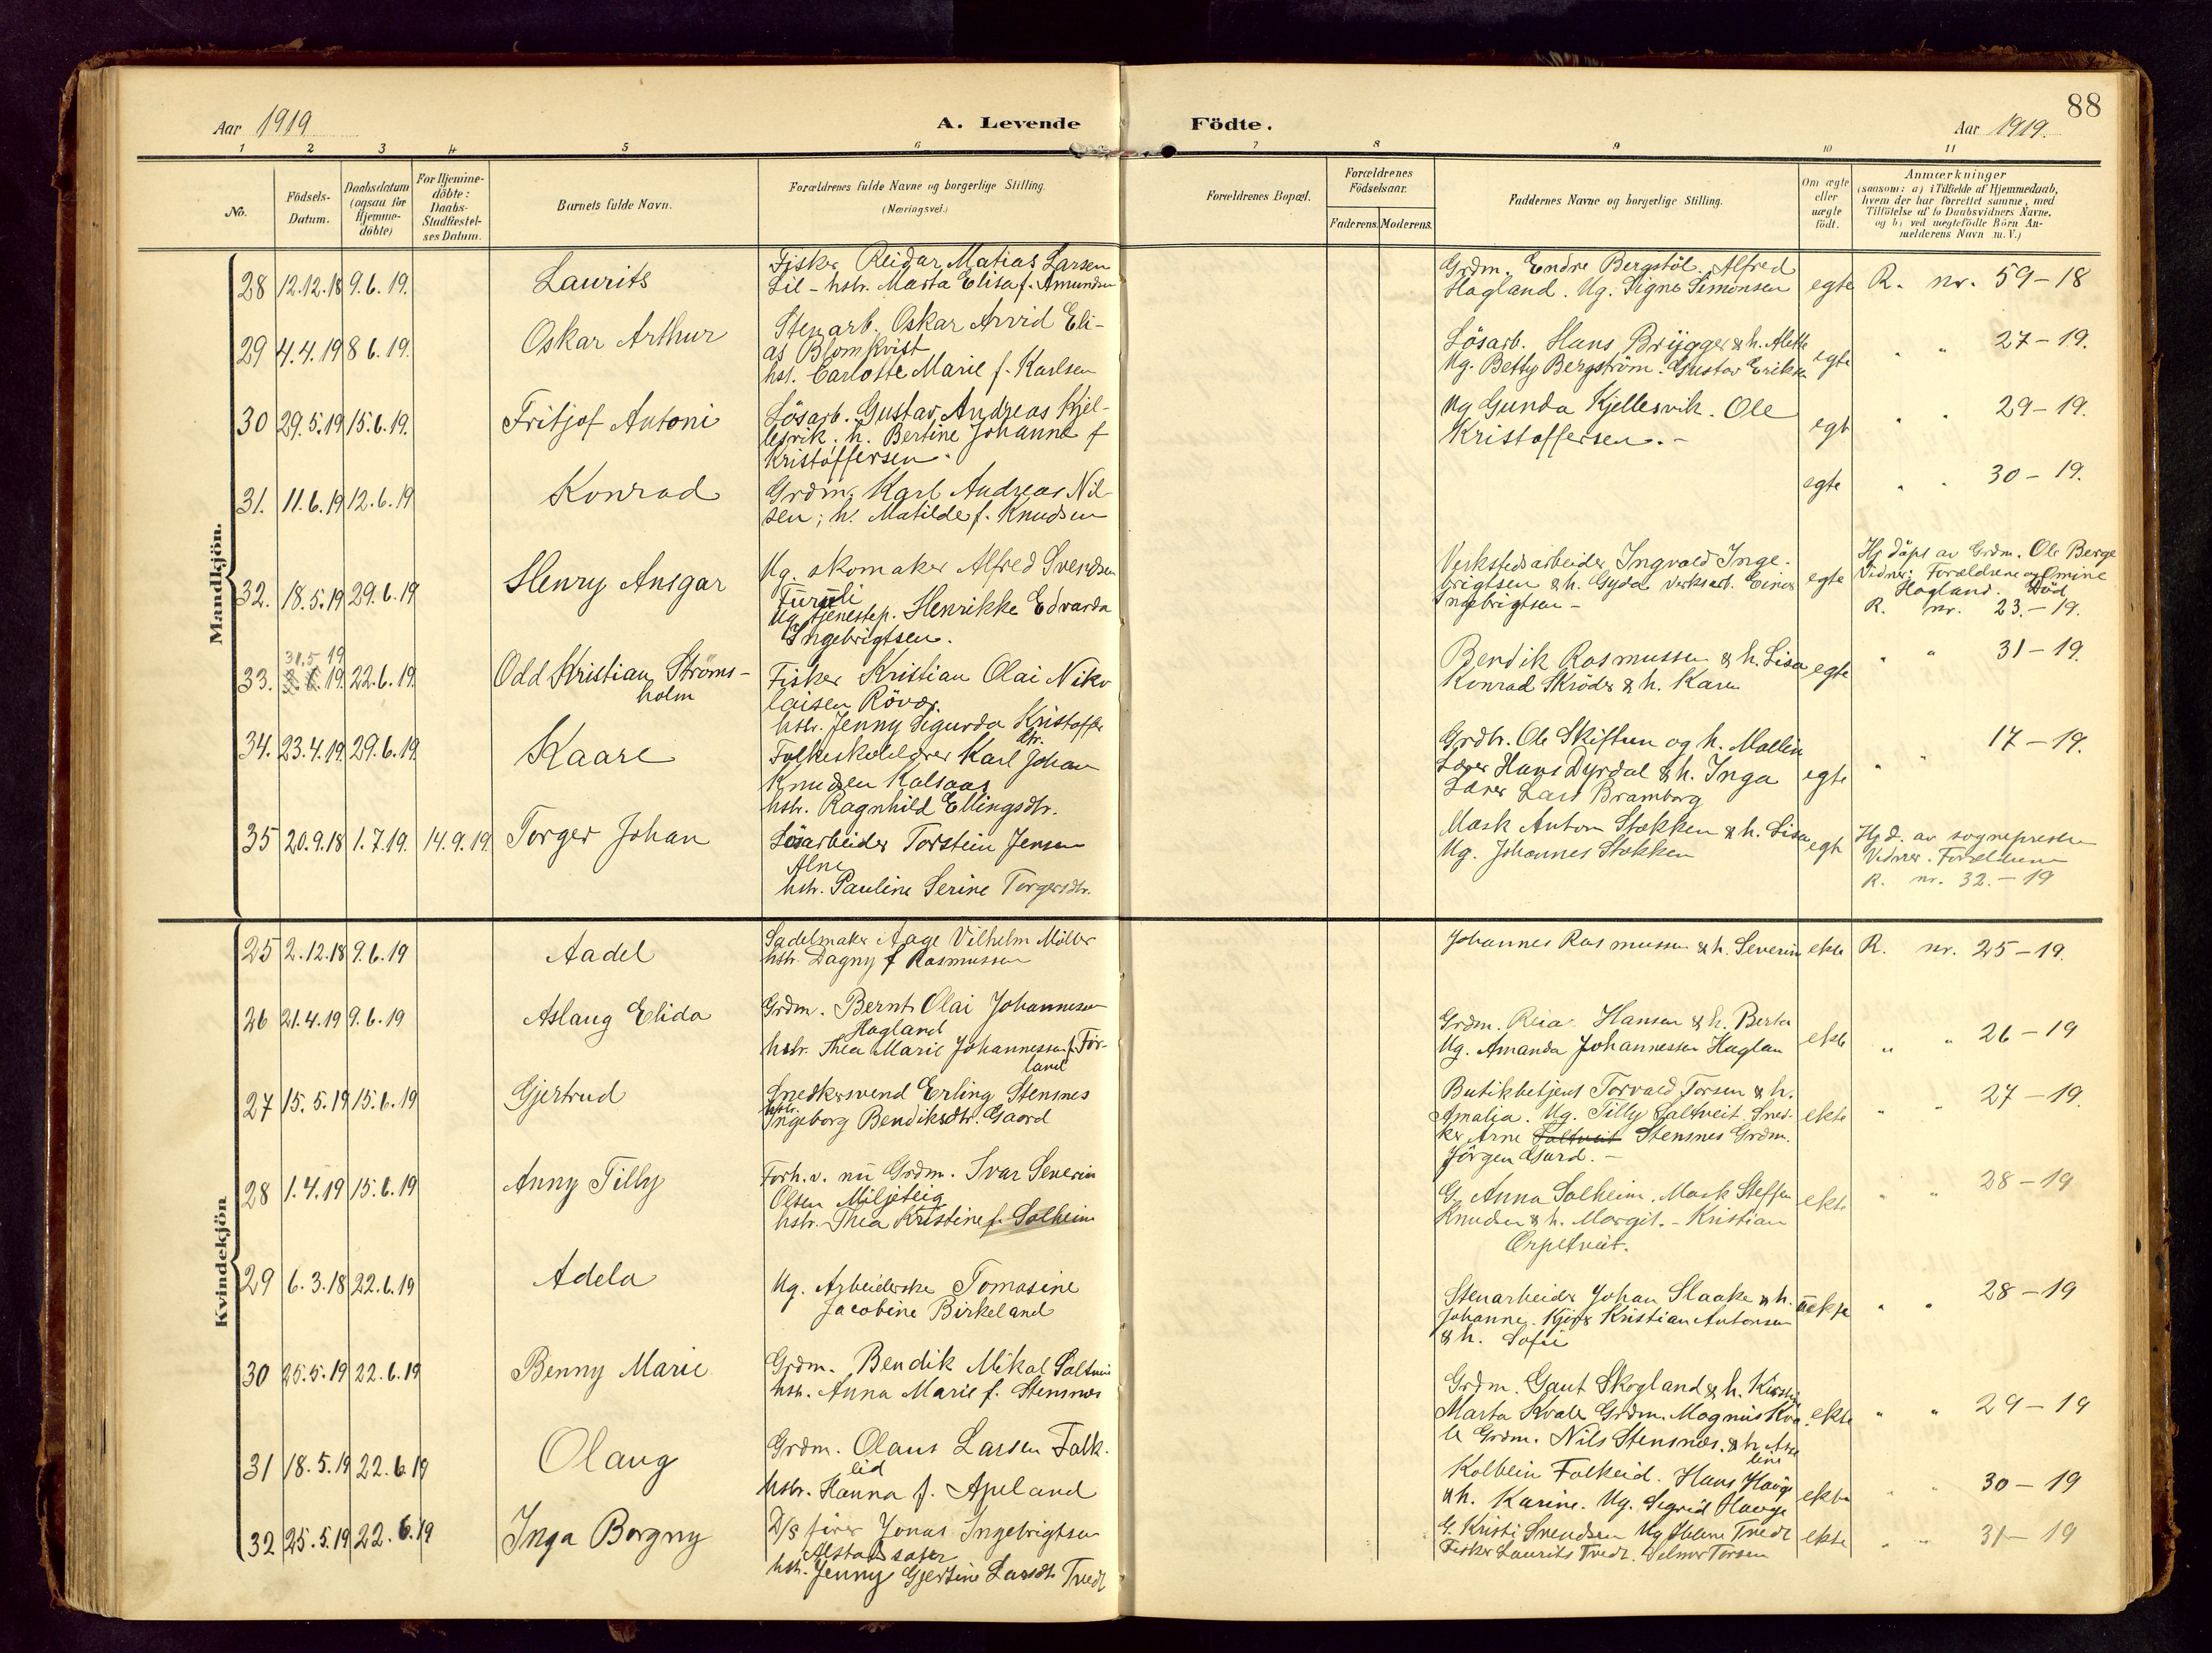 88
Aar 1919
A. Levende Födte.
Aar 1919.
1 2 3 4 5 6 7 8 9 10 11
No.
Födsels-
Datum.
Daabsdatum
(ogsaa for
Hjemme-
döbte)
For Hjemme-
döbte:
Daabs-
Stadfæstel-
ses Datum.
Barnets fulde Navn.
Forældrenes fulde Navne og borgerlige Stilling.
(Næringsvei.)
Forældrenes Bopæl.
Forældrenes
Födselsaar.
Faderens. Moderens.
Faddernes Navne og borgerlige Stilling.
Om ægte
eller
uægte
født.
Anmærkninger
(saasom: a) i Tilfælde af Hjemmedaab,
hvem der har forrettet samme, med
Tilføielse af to Daabsvidners Navne.
og b) ved uægtefödte Börn An-
melderens Navn m. V.)
Mandkjön.
28 12.12.18 9.6.19. Laurits
Fisker Reidar Matias Larsen
Lil - hstr. Marta Elisa f. Amundsen
Grdm. Endre Bergstöl. Alfred
Hagland. Ug. Signe Simonsen
egte R. nr. 59-18
29 4.4.19 8 6.19. Oskar Arthur
Stenarb. Oskar Arvid Eli-
as Blomkvist
hst. Carlotte Marie f. Karlsen
Lösarb. Hans Brygger & h. Alette
Ug. Betty Bergström. Gustav Eriksen
egte " " 27-19.
30 29.5.19 15.6.19. Fritjof Antoni
Lösarb. Gustav Andreas Kjel-
lesvik. h. Bertine Johanne f
Kristoffersen.
Ug Gunda Kjellesvik. Ole
Kristoffersen. -
egt " " 29-19.
31. 11.6.19 12.6.19 Konrad
Grdm. Karl Andreas Nil-
sen; h. Matilde f. Knudsen
egte " " 30-19.
32. 18.5.19 29.6.19 Henry Ansgar
Ug. skomaker Alfred Svendsen
Furuli
Ug tjenestep. Henrikke Edvarda
Ingebrigtsen.
Verkstedsarbeider Ingvald Inge-
brigtsen & h. Gyda verksarb. Einar
Ingebrigtsen -
egte
Hj döpt av Grdm. Ole Berge
Vidner: Forældrene og Omine
Hagland. Död
R. nr. 23.-19.
33. 31.5 19 22.6.19. Odd Kristian Ströms-
holm
Fisker Kristian Olai Niko
laisen Rövær.
hstr. Jenny Sigurda Kristoffer
dtr.
Bendik Rasmussen & h. Lisa
Konrad Skröder & h. Karen
egte " " 31-19.
34. 23.4.19. 29.6.19. Kaare
Folkeskolelærer Karl Johan
Knudsen Kalsaas
hstr. Ragnhild Ellingsdtr.
Grdbr. Ole Skiftun og h. Mallin
Lærer Hans Dyrdal & h. Inga
Lærer Lars Bramborg
egte " " 17-19.
35 20.9.18 1.7.19. 14.9.19. Torger Johan
Lösarbeider Torstein Jensen
Alne
hstr. Pauline Serine Torgersdtr.
Mask Anton Stokken & h. Lisa
Ug. Johannes Stokken
egte
Hj d. av sognepresten
Vidner. Forældrene
R. nr. 32.-19
Kvindekjön
25 2.12.18 9.6.19 Aadel
Sadelmaker Aage Vilhelm Möller
hstr. Dagny f Rasmussen
Johannes Rasmussen & h. Severin
ekte R. nr. 25-19.
26 21.4.19 9.6.19 Aslaug Elida
Grdm. Bernt Olai Johannesen
Hagland
hstr. Thea Marie Johannessen f. För-
land
Grdm. Hansen & h. Berta
Ug. Amanda Johannessen Haglan
ekte " " 26-19
27 15.5.19 15.6.19 Gjertrud
Snedkersvend Erling Stensnes
hstr.
Ingeborg Bendiksdtr. Gaard
Butikbetjent Torvald Torsen & h.
Amalia. Ug. Tilly Saltveit. Sned-
ker Arne Saltveit Stensnes Grdm.
Jörgen Gard. -
ekte " " 27-19.
28 1.4.19 15.6.19 Anny Tilly
Forh.v. nu Grdm. Ivar Severin
Olsen Miljeteig
hstr. Thea Kristine f. Solheim
G. Anna Solheim. Mask Steffen
Knudsen & h. Margit. - Kristian
Ørpetveit.
ekte " " 28-19
29 6.3.18 22.6.19 Adela
Ug. Arbeiderske Tomasine
Jacobine Birkeland
Stenarbeider Johan Slaake & h.
Johanne. Kristian Antonsen
& h. Sofie
uekte " " 28-19
30 25.5.19 22.6.19 Benny Marie
Grdm. Bendik Mikal Saltveit
hstr. Anna Marie f. Stensnes
Grdm. Gaut Skogland & h. Kirsti
Marta Kvale Grdm. Magnus Kva
le Grdm. Nils Stensnes. & h. Ase
line
ekte " " 29-19
31 18.5.19 22.6.19 Olaug
Grdm. Olaus Larsen Falk-
eid
hstr. Hanna f. Apeland
Kolbein Falkeid. Hans Havge
& h. Karine. Ug. Sigrid Havge
ekte " " 30-19
32 25.5.19 22.6.19 Inga Borgny
D/s förer Jonas Ingebrigtsen
Alstadsæter
hstr. Jenny Gjertine Larsdtr Tvedt
G. Kristi Svendsen Ug Tvedt
Fisker Laurits Tvedt. Velmer Torsen
ekte " " 31-19